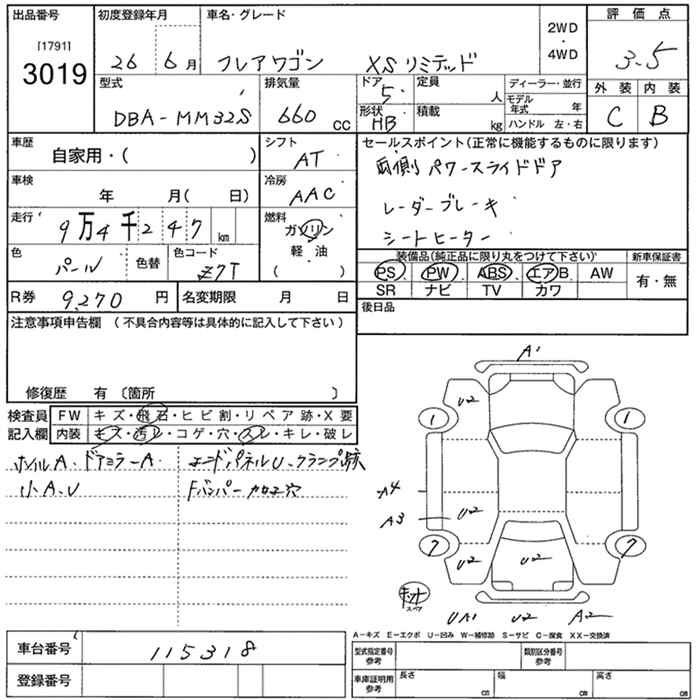 出品番号 初度登録年月 車名・グレード 2WD・4WD 評価点
[1791]
3019 26 6月 フレアワゴン XSリミテッド 3.5
型式 排気量 ドア 定員 ディーラー・並行 外装 内装
DBA-MM32S 660 CC 5 人 モデル年式 年 C B
形状 積載 ハンドル 左・右
HB kg
車歴 シフト セールスポイント(正常に機能するものに限ります)
自家用・( ) AT 両側 パワースライドドア
車検 冷房
年 月( 日) AAC レーダーブレーキ
走行 燃料
9万4千247 km ガソリン シートヒーター
軽油
( )
色 色替 色コード 装備品(純正品に限り丸をつけて下さい) 新車保証書
パール Z7T PS PW ABS エアB AW 有・無
SR ナビ TV カワ
R券 9,270 円 名変期限 月 日 後日品
注意事項申告欄 (不具合内容等は具体的に記入して下さい)
修復歴 有 〔箇所 〕
検査員 FW キズ・飛石・ヒビ割・リペア跡・X要
記入欄 内装 キズ・汚レ・コゲ・穴・スレ・キレ・破レ
ホイルA、ドアミラーA エンドパネルU、クランプ痕
小A、U Fバンパー加工穴
A1
U2
1 1
A4
A3 U2
7 7
U2 U2 U2
キット
スペア
UA1 U2 A2
A-キズ E-エクボ U-凹み W-補修跡 S-サビ C-腐食 XX-交換済
車台番号 115318 型式指定番号 参考 類別区分番号 参考
登録番号 車庫証明用 参考 長さ cm 幅 cm 高さ cm